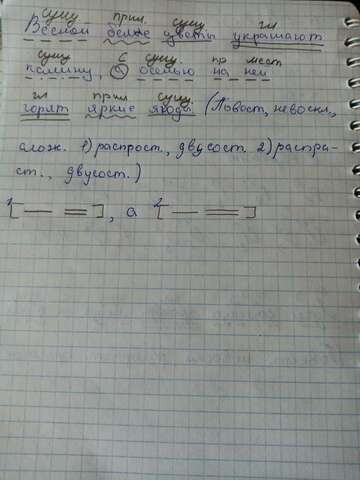 сущ. прил. сущ. гл
Весной белые цветы украшают
сущ. с сущ. пр мест
калину, а осенью на ней
гл прил сущ.
горят яркие ягоды. (Повест., невоскл.,
слож. 1) распрост., двусост. 2) распра-
ст., двусост.)
1[— =], а 2[— =]